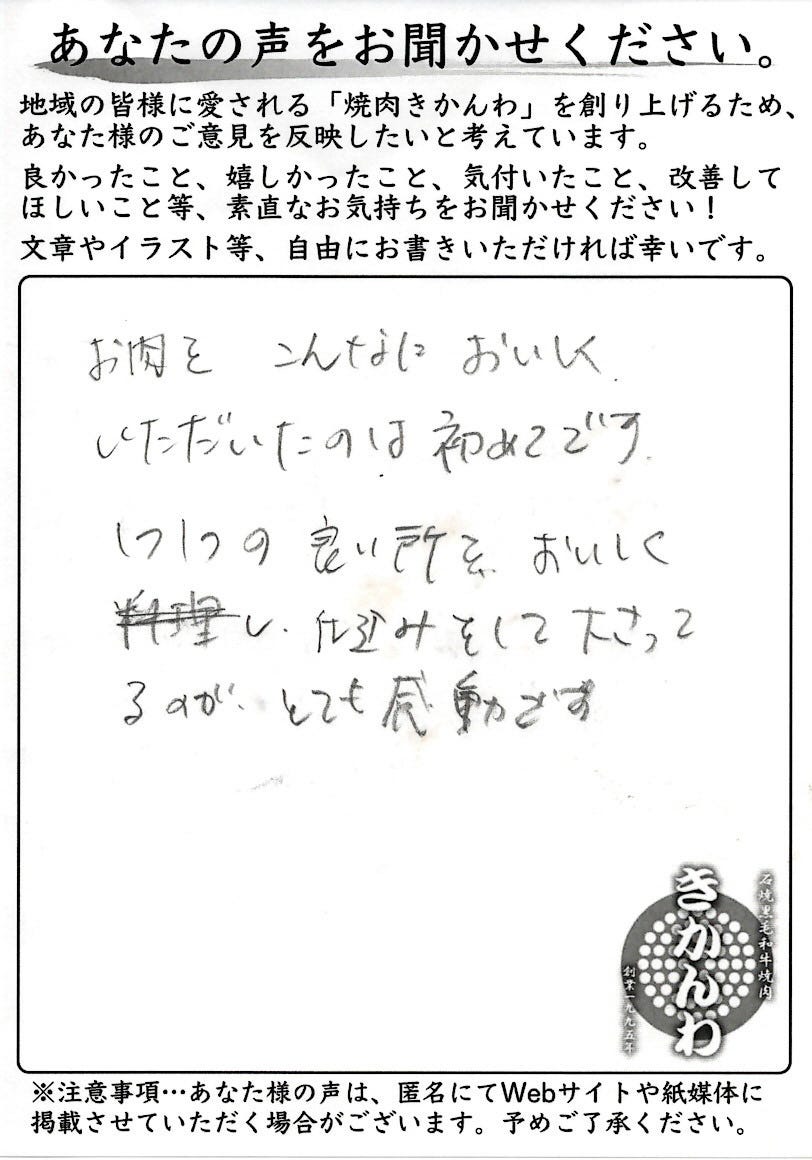 あなたの声をお聞かせください。
地域の皆様に愛される「焼肉きかんわ」を創り上げるため、
あなた様のご意見を反映したいと考えています。
良かったこと、嬉しかったこと、気付いたこと、改善して
ほしいこと等、素直なお気持ちをお聞かせください！
文章やイラスト等、自由にお書きいただければ幸いです。
お肉を こんなに おいしく
いただいたのは 初めてです。
1つ1つの 良い所を、おいしく
料理し、仕込みをして 下さって
るのが、とても感動です
石焼黒毛和牛焼肉
きかんわ
創業一九九五年
※注意事項…あなた様の声は、匿名にてWebサイトや紙媒体に
掲載させていただく場合がございます。予めご了承ください。